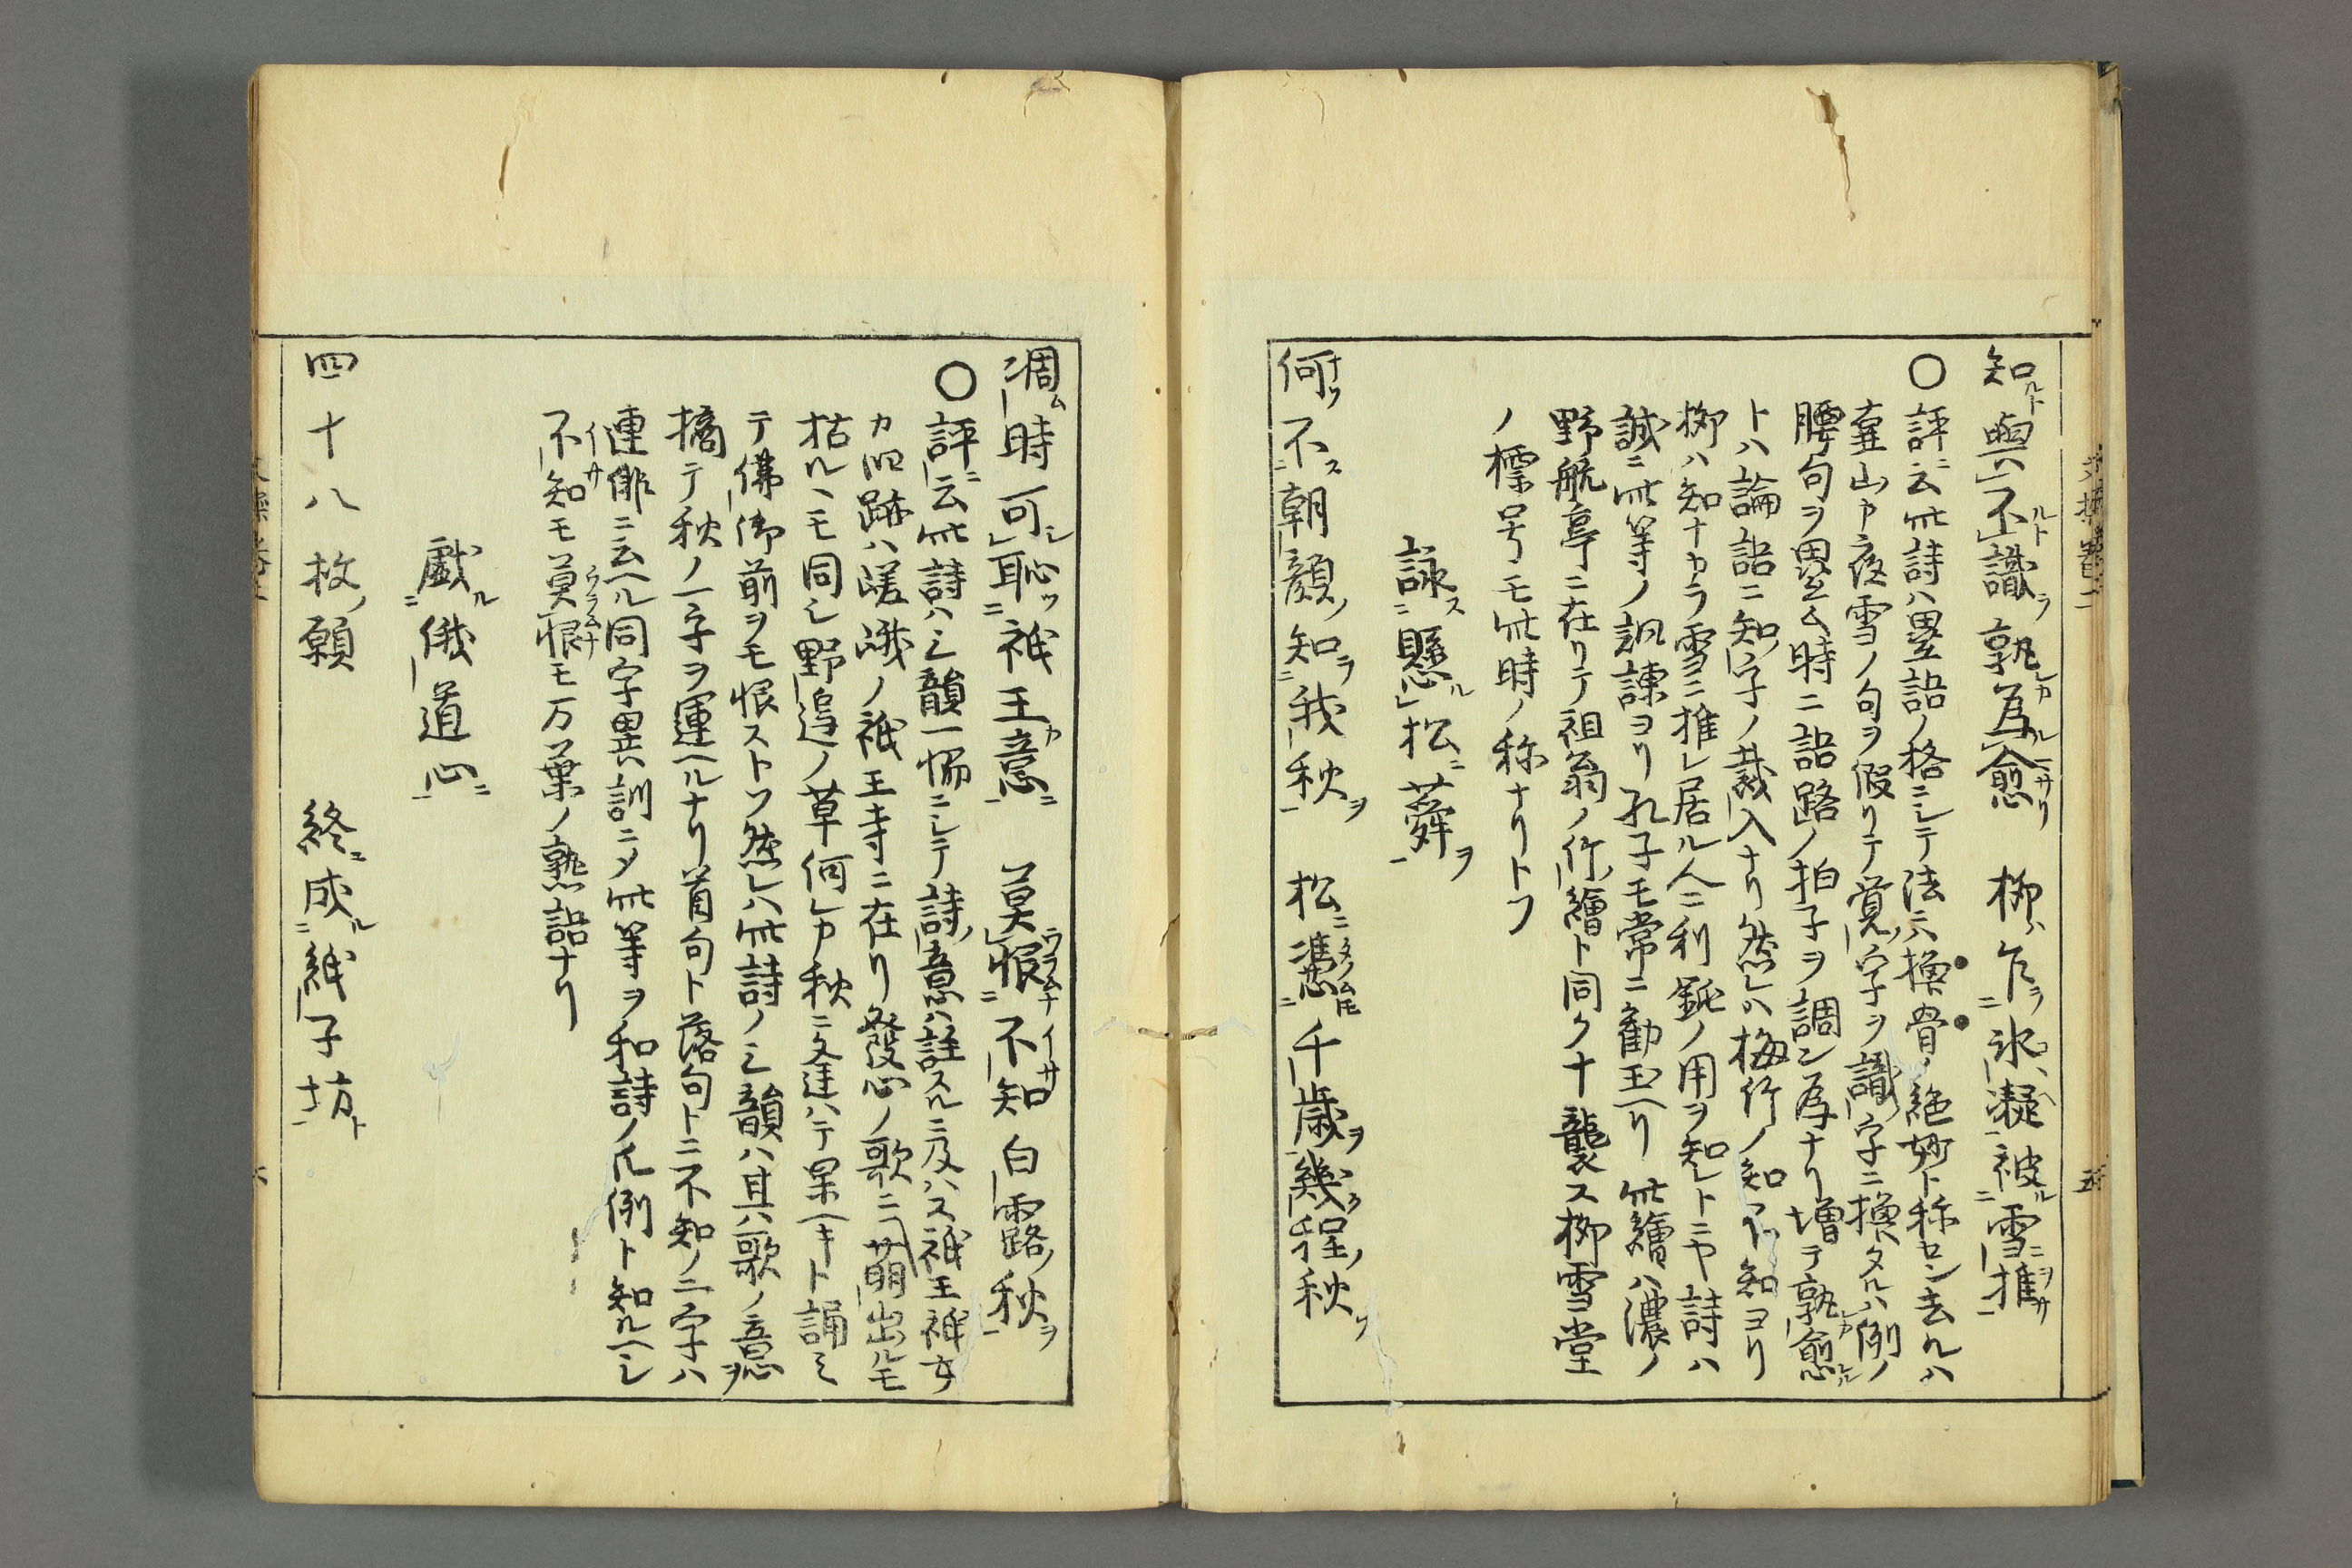 知ルト與ハ不ルト識ラ孰レカ為ル愈ニサリ 柳ハ乍ラ氷コヽヘ凝被ル雪ニ推ヲサ
〇評ニ云此詩ハ畳語ノ格ニシテ法ニ換骨ノ絶妙ト称センキ去ルハ
嵐山カ夜雪ノ句ヲ假リテ覚ノ字ヲ識ノ字ニ換タルハ例ノ
腰句ヲ畳ム時ニ語路ノ拍子ヲ調ン為ナリ増テ孰レカ愈ル
トハ論語ニ知ノ字ノ裁入ナリ然レハ梅竹ノ知ヿ不知ヨリ
柳ハ知ナカラ雪ニ推レ居ル人ニ利鈍ノ用ヲ知レトニヤ詩ハ
誠ニ此等ノ諷諌ヨリ孔子モ常ニ勧玉ヘリ此繪ハ濃ノ
野航亭ニ在リテ祖翁ノ竹ノ繪ト同ク十襲ス柳雪堂
ノ標号モ此時ノ称ナリトフ
詠ス懸ル松ニ蕣ヲ
何ナソ不ス朝顔ノ知ラ我秋ヲ 松ニ憑タノムモ千歳ヲ幾程ノ秋ソ
凋ム時可シ恥ツ祇王カ意ニ 莫恨ウラムナ不知イサ白露ノ秋ヲ
〇評ニ云此詩ハ三韻一惕ニシテ詩ノ意ハ註スルニ及ハス祇王祇女
カ旧跡ハ嵯峨ノ祇王寺ニ在リ發心ノ歌ニ萌出ルモ
枯ルヽモ同シ野邉ノ草何レカ秋ニ逢ハテ果ヘキト誦ミ
テ佛御前ヲモ恨ストソ然レハ此詩ノ三韻ハ其ハ歌ノ意ヲ
摘テ秋ノ一字ヲ運ヘルナリ首句ト落句トニ不知ノ二字ハ
連俳ニ云ヘル同字異ハ訓ニメ此等ヲ和詩ノ凡例ト知ルヘシ
不知イサモ莫恨ウラムナモ万葉ノ熟語ナリ
戯ル俄道心ニ
四十八枚ノ願 終ニ成ル紙子坊ト